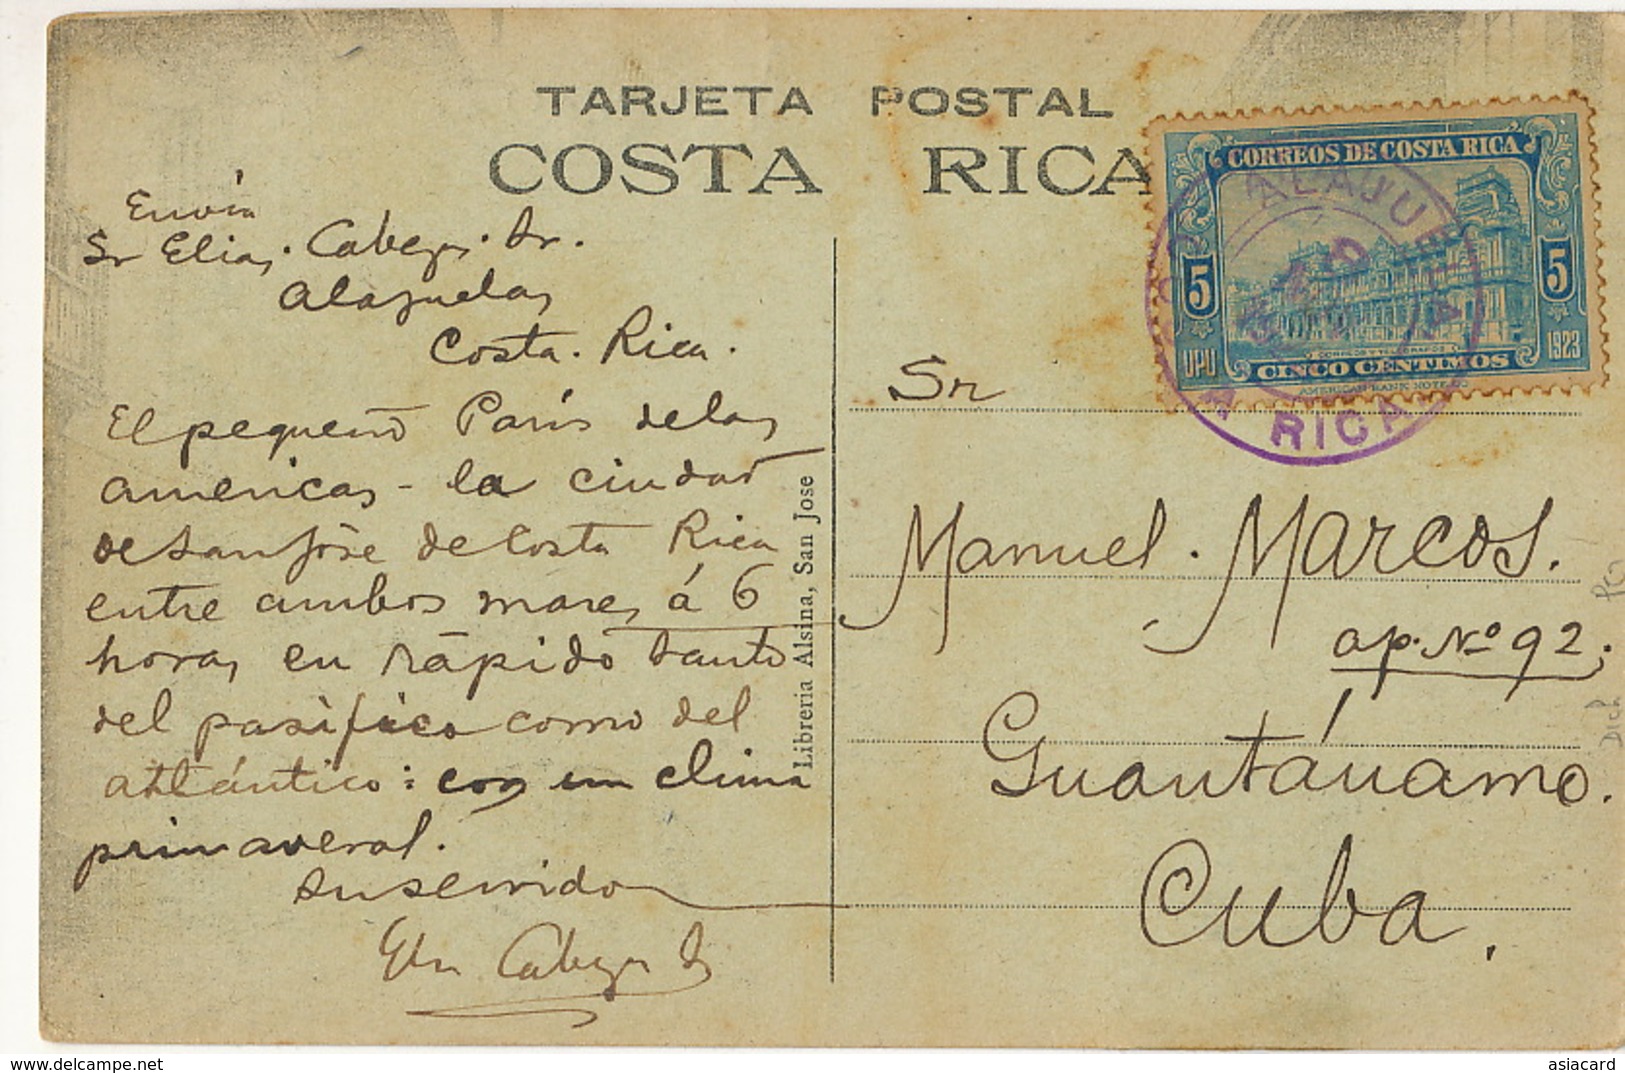 TARJETA POSTAL
COSTA RICA
Envía
Sr Elias. Cabezas.
Alajuela,
Costa. Rica.
El pequeño Paris de las
americas - la ciudad
de San José de Costa Rica
entre ambos mares, á 6
horas, en rápido tanto
del pasifico como del
atlántico: con un clima
primaveral.
su servidor
Cabezas
Libreria Alsina, San Jose
CORREOS DE COSTA RICA
5 5
UPU 1923
CORREOS Y TELEGRAFOS
CINCO CENTIMOS
AMERICAN BANK NOTE CO
ALAJUELA
COSTA RICA
Sr
Manuel. Marcos.
ap. Nº 92;
Guantánamo.
Cuba.
www.delcampe.net
asiacard